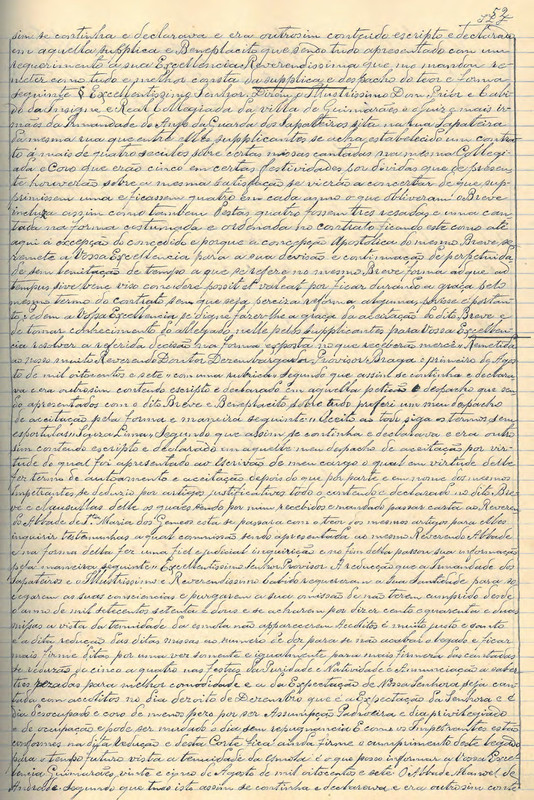 52
sim se continha e declarava e era outrosim contendo escripto e declarara
em aquella supplica e Beneplacito que sendo tudo apresentado com um
requerimento a sua Excellencia Reverendissima que, mo mandou re-
meter como tudo e melhor consta da supplica e despacho do teor e forma
seguinte § Excellentissimo Senhor. Dizem o Illustrissimo Dom, Prior e Cabi-
do da Insigne e Real Collegiada da villa de Guimarães e o Juiz e mais ir-
mãos da Irmandade do Anjo da Guarda dos Sapateiros sita na rua Sapateira
da mesma rua que entre elles supplicantes se acha estabelecido um contra-
to á mais de quatro seculos sobre certas missas cantadas na mesma Collegi-
ada e Coro que erão cinco em certas festividades por duvidas que de presen-
te houverão sobre a mesma satisfação se vierão a concertar de que sup-
primissem uma e ficassem quatro em cada anno o que obtiveram o Breve
incluzo assim como tambem destas quatro fossem tres resadas e uma can-
tada na forma costumada e ordenada no contrato ficando este como até
aqui á excepção do concedido e porque a concepção Apostolica do mesmo Breve se
remete a Vossa Excellencia para a sua devisão e continuação de perpetuida-
de sem limitação de tempo a que se refere no mesmo Breve forma ad que ad
tempus sive bene viso considere possit et valeat por ficar durando a graça pelo
mesmo termo do contrato sem que seja perciza reforma algumas, por isso e portan-
to Pedem a Vossa Excellencia se digne fazer-lhe a graça da aceitação do dito Breve e
de tomar conhecimento do allegado nelle pelos supplicantes para Vossa Excellen-
cia resolver a referida decisão na forma exposta no que receberão mercê. Remetida
ao nosso muito Reverendo Doutor Dezembargador Provisor, Braga e primeiro de Agos-
to de mil oitocentos e sete com uma rubrica segundo que assim se continha e declara-
va e era outrosim contendo escripto e declarado em aquella petição e despacho que sen-
do apresentados com o dito Breve e Beneplacito sobre tudo proferi um meu despacho
de aceitação pela forma e maneira seguinte Aceito ao todo siga os termos sem
esportulas Segura Lima, Segundo que assim se continha e declarava e era outro-
sim contendo escripto e declarado em aquelle meu despacho de aceitação por vir-
tude do qual foi apresentado ao Escrivão de meu cargo o qual em virtude delle
fez termo de autoamento e aceitação depois do que por parte e em nome dos mesmos
Impetrantes se deduzio por artigos justificativos todo o contendo e declarado no dito Bre-
ve e clausullas delle os quaes sendo por mim recebidos e mandado passar carta ao Reveren-
do Abbade de Sta Maria dos Gemeos esta se passara com o teor dos mesmos artigos para elles
inquirir testemunhas a qual commissão sendo apresentada ao mesmo Reverendo Abbade
e na forma della fez uma fiel e judicial inquirição e no fim della passou sua informação
pela maneira seguinte Excellentissimo Senhor Provisor A redução que a Irmandade dos
Sapateiros e o Illustrissimo e Reverendissimo Cabido requereram a Sua Santidade para se-
gurarem as suas consciencias e purgarem a sua omissão de não terem cumprido desde
o anno de mil setecentos setenta e dous e se acharem por dizer cento quarenta e duas
missas a vista da tenuidade da esmola não apparecerem Acolitos é muito justo e santo
é a dita redução das ditas missas no numero e de por para se não acabar o legado e ficar
mais firme ditas por uma vez somente e igualmente para mais firmeza das cantadas
se reduzão de cinco a quatro nas festas da Puridade e Natividade e Annunciação a saber
tres rezadas para melhor comodidade e a da Expectação de Nossa Senhora seja can-
tada com acolitos no dia dezoito de Dezembro que é a Expectação da Senhora e é
dia desocupado e coro de menos pezo por ser Assumpção Padroeira e dia privilegiado
e de ocupação e pode ser mudado o dia sem repugnancia e como os Impetrantes estão
conformes na dita redução e desta sorte fica ainda firme o cumprimento deste legado
para o tempo futuro vista a tenuidade da esmola é o que posso informar a Vossa Excel-
lencia Guimarães vinte e cinco de Agosto de mil oitocentos e sete O Abbade Manoel de
Andrade segundo que tudo isto assim se continha e declarava e era outrosim conte-